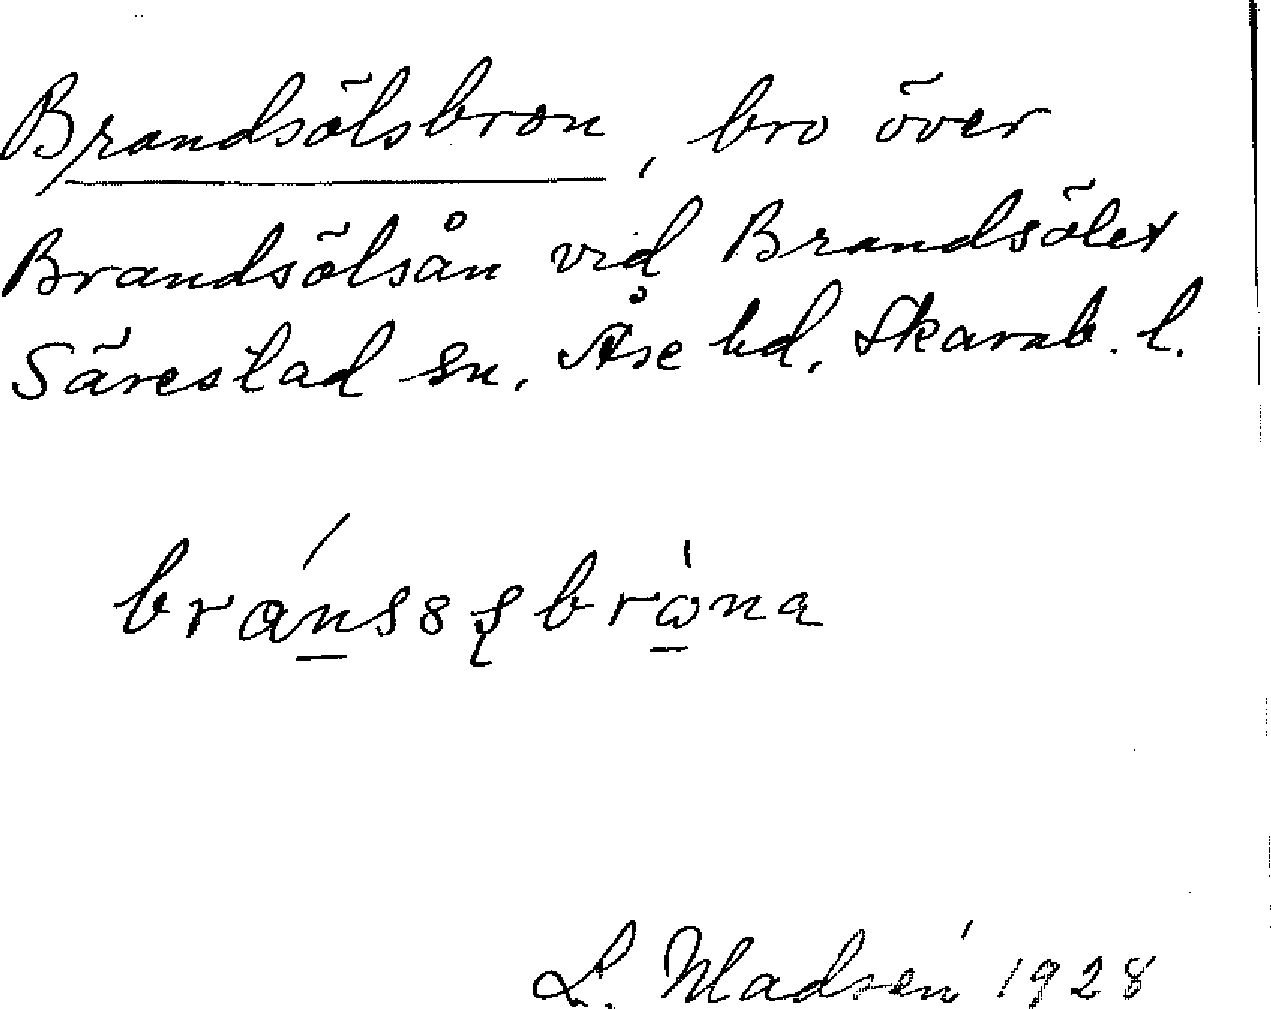 Brandsölsbron, bro över
Brandsölsån vid Brandsölet
Särestad sn, Åse hd, Skarab. l.
L. Madsén 1928